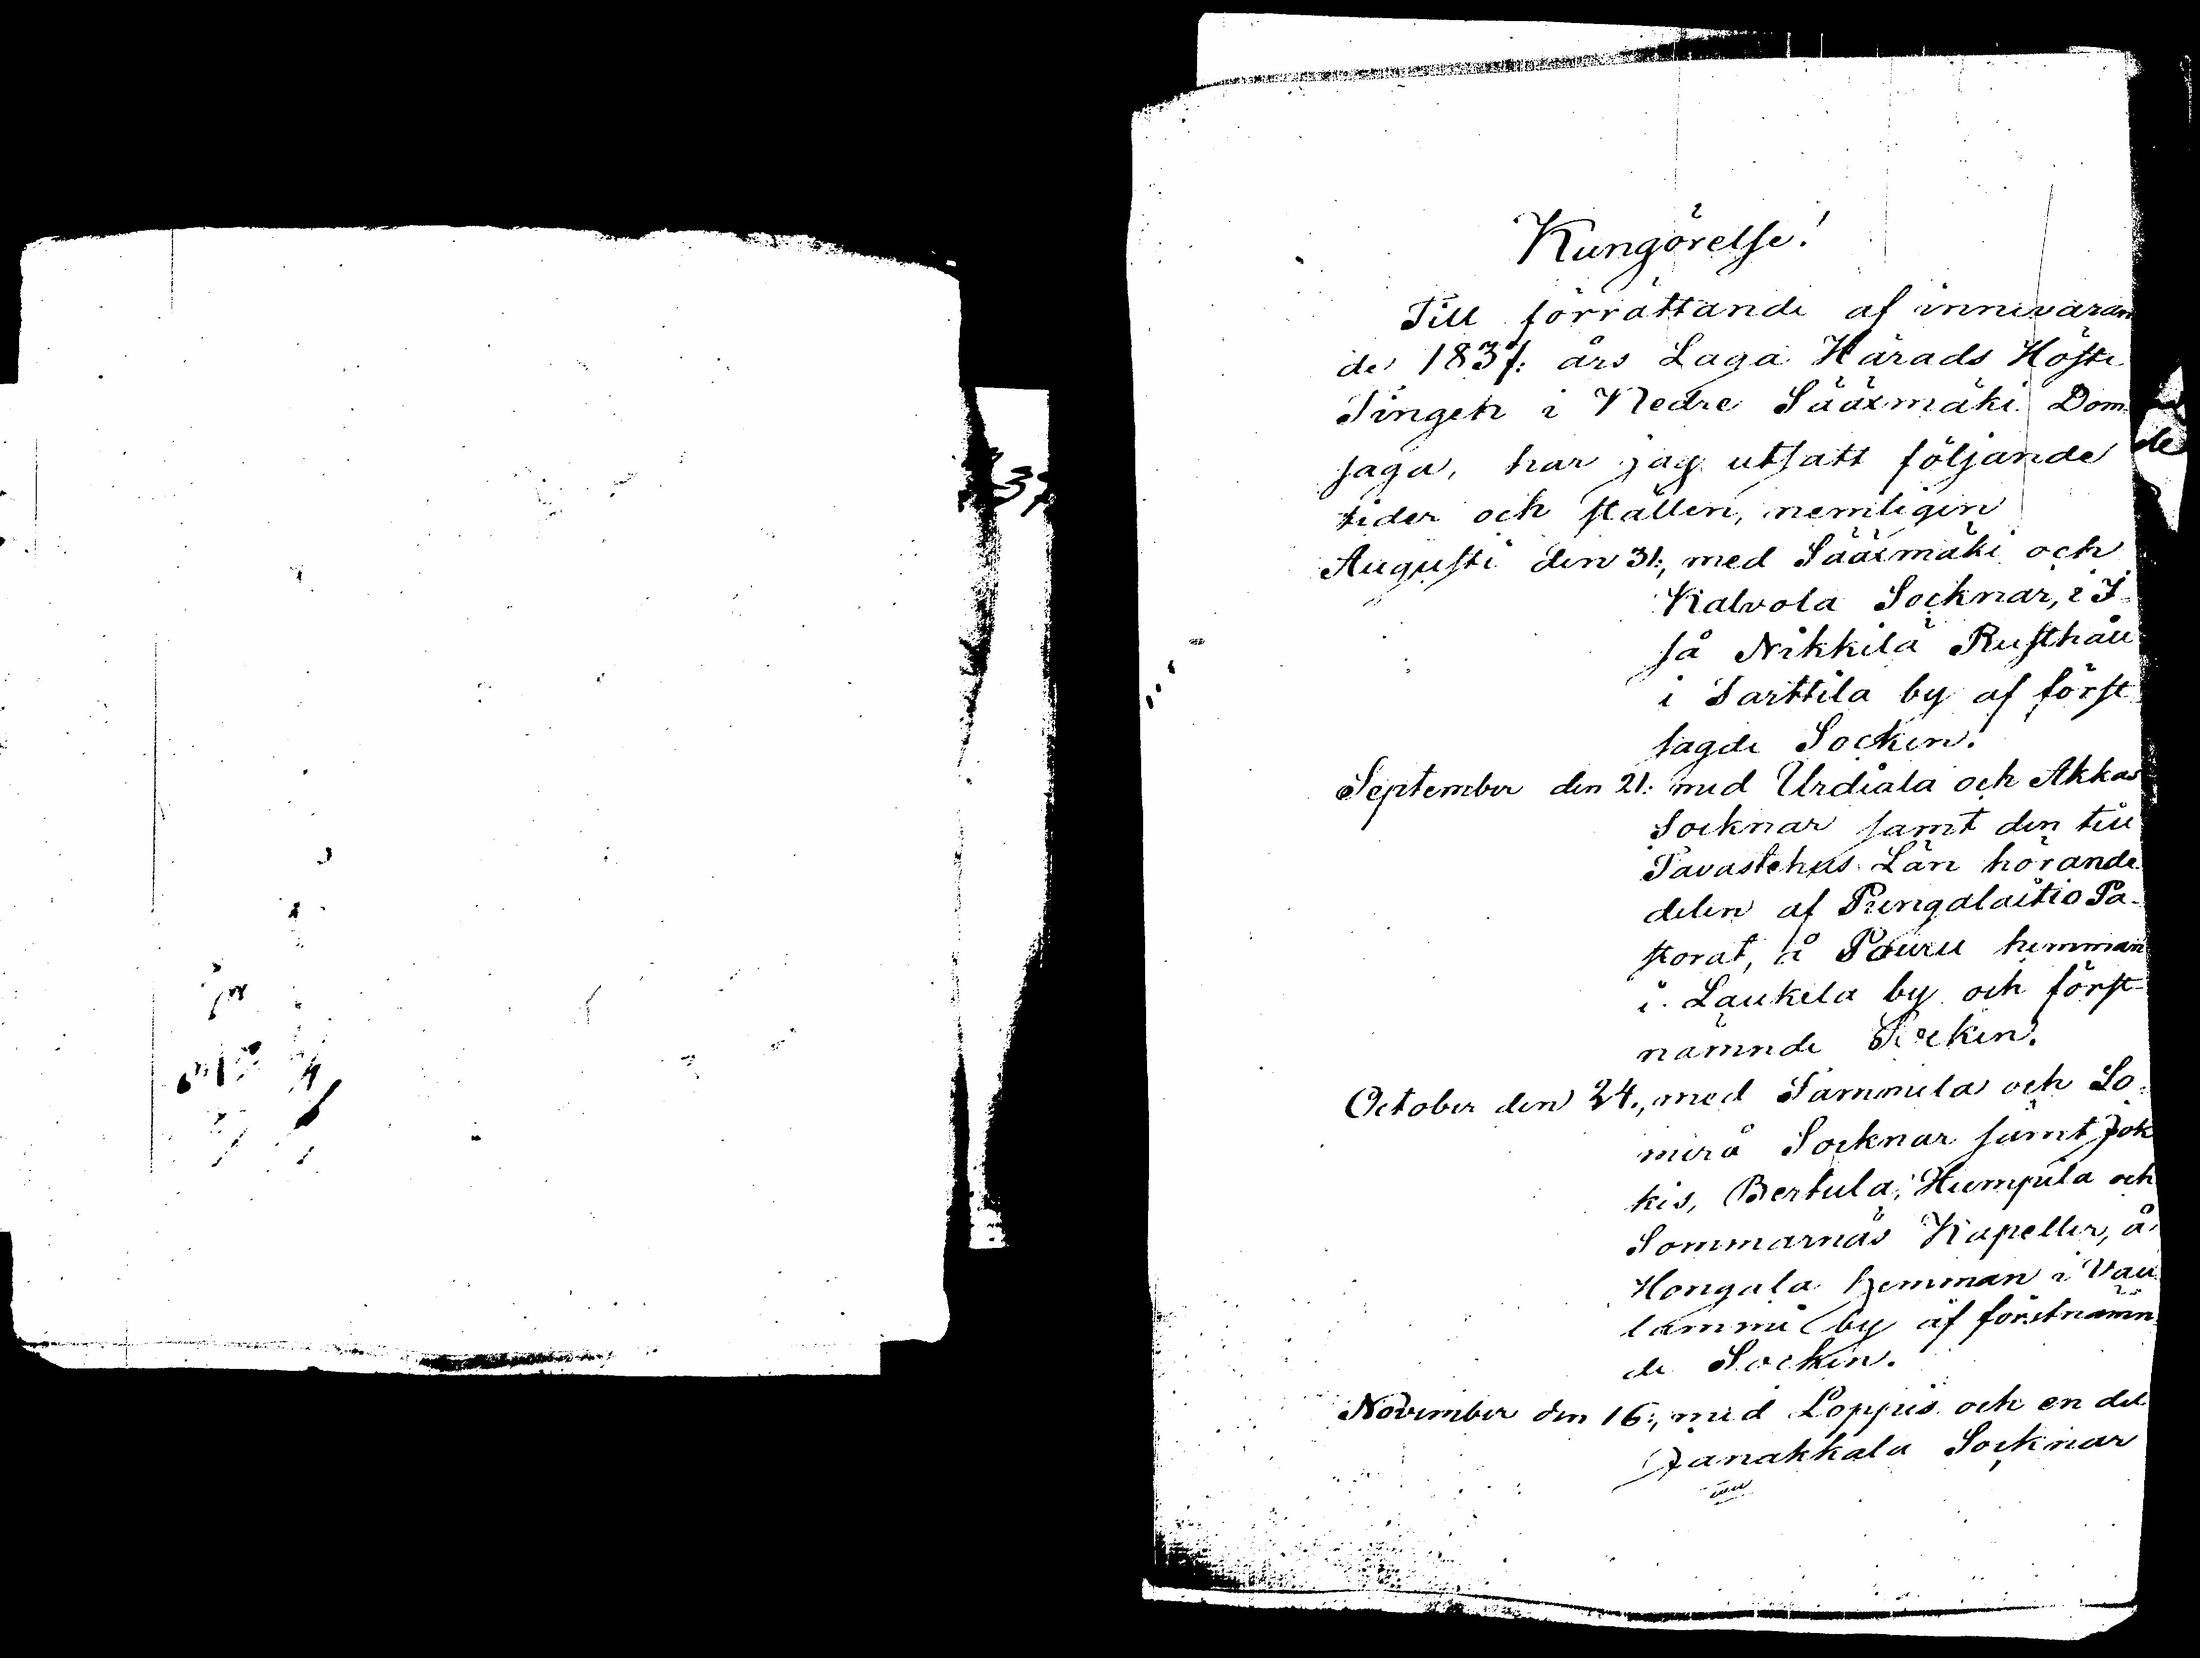 Kungörelse!
Till förrättande af innevaran
de 1837. års Laga Härads Höste
Tingen i Nedre Sääxmäki Dom
saga, har jag utsatt följande
tider och ställen, nemligen
Augusti den 31:, med Sääxmäki och
Kalvola Socknar, i I
så Nikkilä Rusthåll
i Tarttila by af först
sagde Socken.
September den 21: med Urdiala och Akkas
Socknar samt den till
Tavastehus Län hörande
delen af Pungalaitio Pa-
storat, å Pouru hemman
i Laukela by och först
nämnde Socken.
October den 24., med Tammela och So-
merå Socknar samt Jok
kis, Bertula, Humpila och
Sommarnäs Kapeller, å
Hongala hemman i
lammi by af förstnämn
de Socken.
November den 16:, med Loppis och en del
Janakkala Socknar